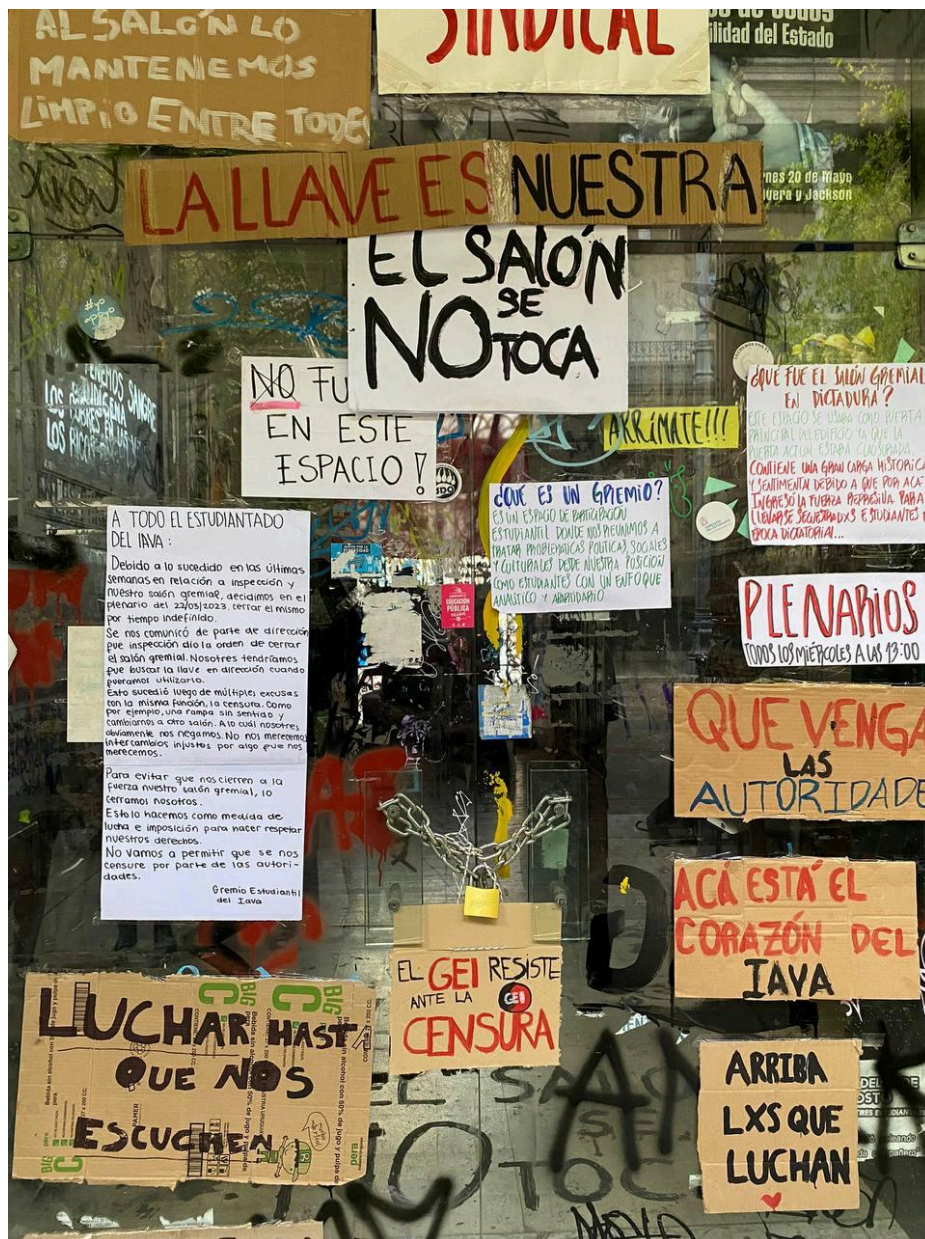 AL SALÓN LO
MANTENEMOS
LIMPIO ENTRE TODES
SINDICAL
ilidad del Estado
rnes 20 de Mayo
vera y Jackson
LA LLAVE ES NUESTRA
EL SALÓN
SE
NO TOCA
#yo
apoyo
NO FU
EN ESTE
ESPACIO!
ARRIMATE!!!
¿QUÉ FUE EL SALÓN GREMIAL
EN DICTADURA?
ESTE ESPACIO SE USABA COMO PUERTA
PRINCIPAL DEL EDIFICIO YA QUE LA
PUERTA ACTUAL ESTABA CLAUSURADA.
CONTIENE UNA GRAN CARGA HISTÓRICA
Y SENTIMENTAL DEBIDO A QUE POR ACÁ
INGRESÓ LA FUERZA REPRESIVA PARA
LLEVARSE SECUESTRADXS ESTUDIANTES
ÉPOCA DICTATORIAL...
¿QUÉ ES UN GREMIO?
ES UN ESPACIO DE PARTICIPACIÓN
ESTUDIANTIL DONDE NOS REUNIMOS A
TRATAR PROBLEMÁTICAS POLÍTICAS, SOCIALES
Y CULTURALES DESDE NUESTRA POSICIÓN
COMO ESTUDIANTES CON UN ENFOQUE
ANALÍTICO Y APARTIDARIO
A TODO EL ESTUDIANTADO
DEL IAVA:
Debido a lo sucedido en las últimas
semanas en relación a inspección y
nuestro salón gremial, decidimos en el
plenario del 22/05/2023 cerrar el mismo
por tiempo indefinido.
Se nos comunicó de parte de dirección
que inspección dio la orden de cerrar
el salón gremial. Nosotres tendríamos
que buscar la llave en dirección cuando
queramos utilizarlo.
Esto sucedió luego de múltiples excusas
con la misma función, la censura. Como
por ejemplo, una rampa sin sentido y
cambiarnos a otro salón. A lo cuál nosotres
obviamente nos negamos. No nos merecemos
intercambios injustos por algo que nos
merecemos.
Para evitar que nos cierren a la
fuerza nuestro salón gremial, lo
cerramos nosotros.
Esto lo hacemos como medida de
lucha e imposición para hacer respetar
nuestros derechos.
No vamos a permitir que se nos
censure por parte de las autori-
dades.
Gremio Estudiantil
del Iava
EDUCACIÓN
PÚBLICA
PLENARIOS
TODOS LOS MIÉRCOLES A LAS 13:00
QUE VENGA
LAS
AUTORIDADE
ACÁ ESTÁ EL
CORAZÓN DEL
IAVA
EL GEI RESISTE
ANTE LA GEI
CENSURA
LUCHAR HASTA
QUE NOS
ESCUCHEN
BIG C
BIG C
pera
EL SALÓN
SE
NO TOC
ARRIBA
LXS QUE
LUCHAN